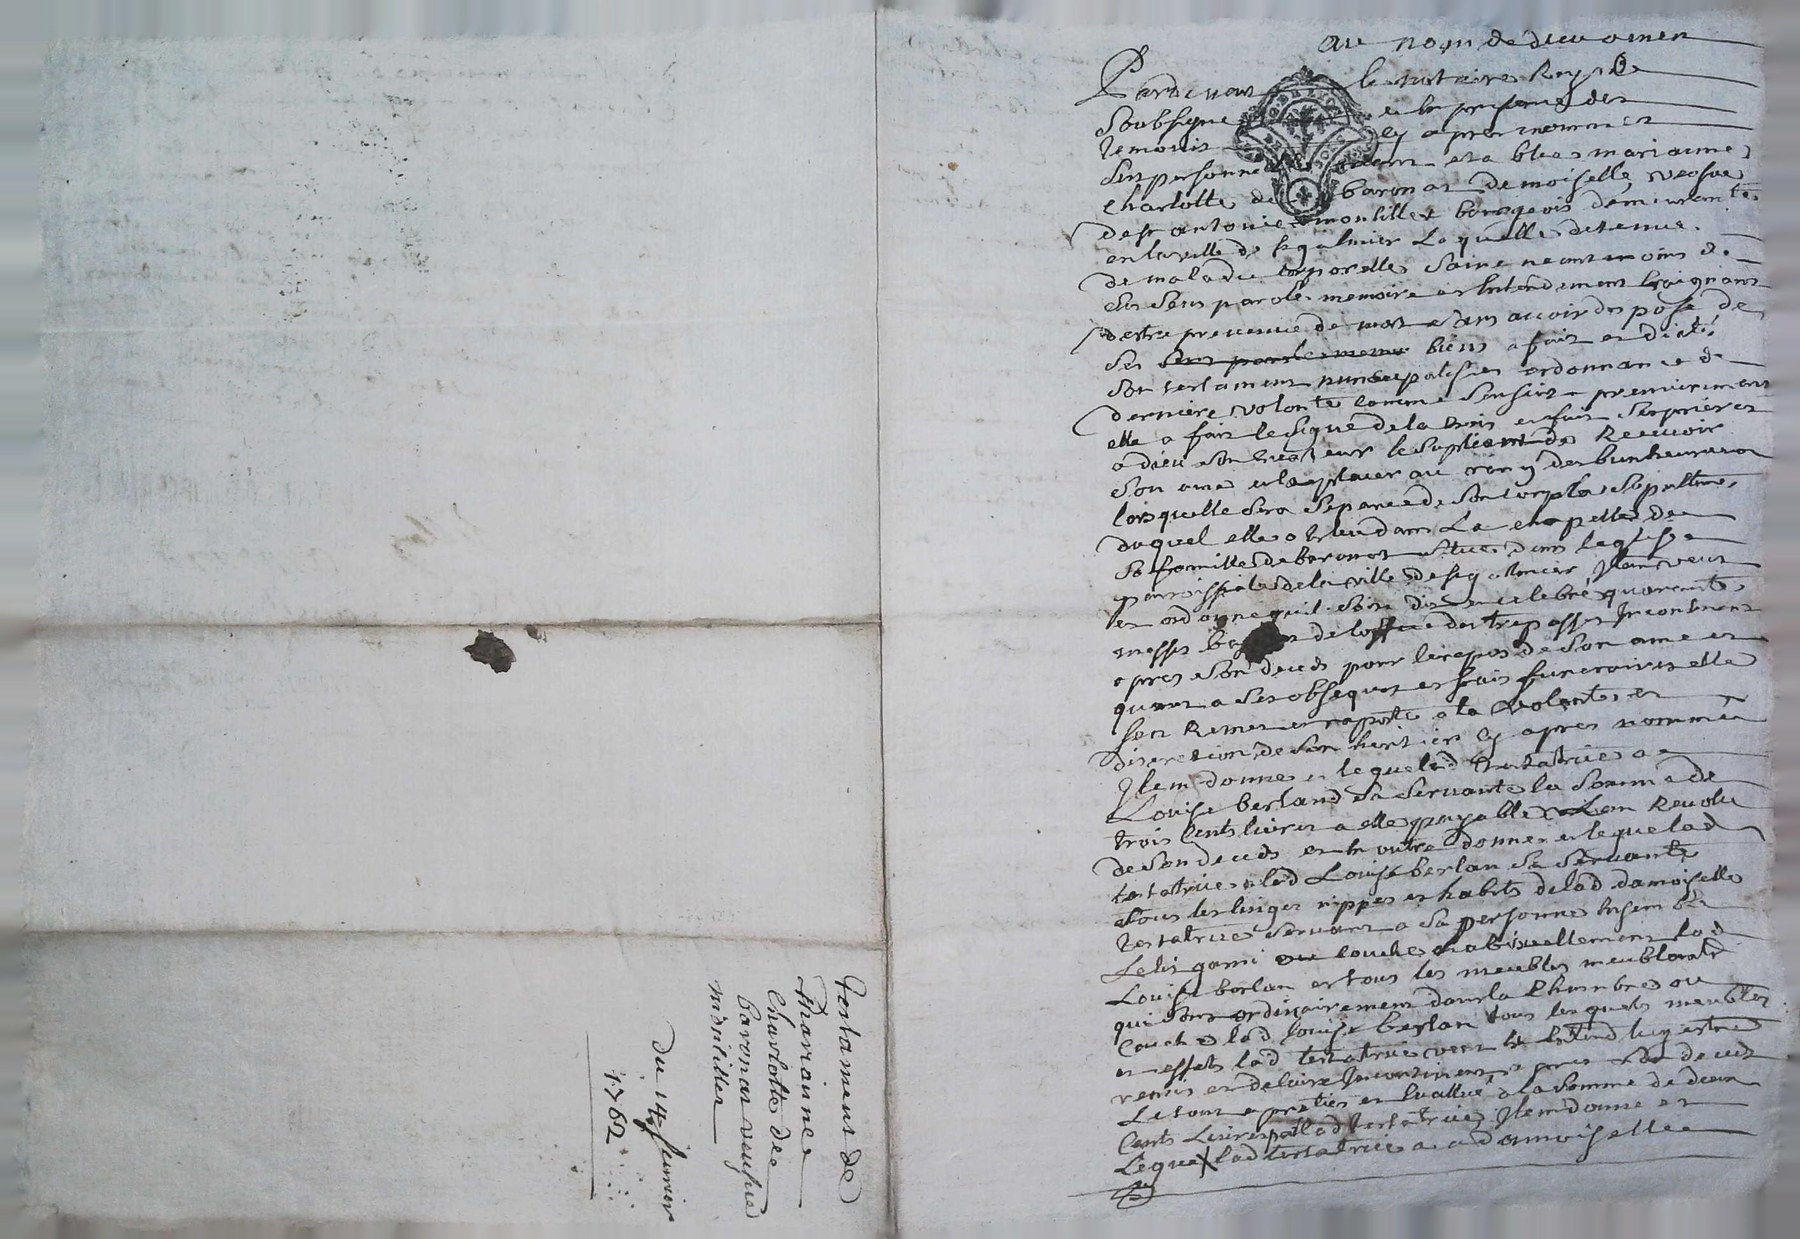 au nom de dieu amen
Pardevant le notaire Royal
Soubsigné et En presence des
temoins cy apres nommés
En personne Est establies mariannes
Charlotte de baronat demoiselle veofve
de sr antoine montiller bourgeois demeurante
en la ville de st galmier Laquelle detenue
de maladie corporelle saine neantmoins de
ses sens parole memoire et Entendement Craignant
destre prevenue de mort sans avoir disposé de
ses biens a fait et dicté
son testament nuncupatif et ordonnance de
derniere volonté comme sensuit premierement
elle a fait le signe de la croix en fait ses prieres
a dieu son Createur le supliant de Recevoir
son ame et la placer au rang des bienheureux
lorsquelle sera separée de son corps la sepulture
duquel elle a Eslu dans La chapelle de
sa famille de baronat situee dans leglise
parroissiale de la ville de st galmier Item veut
et ordonne quil soit dit et celebré quarante
messes basses de loffice des trepassés Incontinent
apres son deceds pour le repos de son ame et
quant a ses obseques et frais funeraires elle
sen Remet et raporte a la volonté et
discretion de son heritier cy apres nommé
Item donne et legue lad testatrice a
Louise berland sa servante la somme de
trois Cents livres a elle payable Lan Revolu
de son deceds et En outre donne et legue lad
testatrice a lad Louise berlan sa servante
tous les linges nippes et habits de lad damoiselle
testatrice servant a sa personne Ensemble
Le lit garni ou couche habituellement lad
Louise berlan et tous les meubles meublants
qui sont ordinairement dans la Chambre ou
Couche lad louise berlan tous lesquels meubles
et effets lad testatrice veut et Entend luy estre
remis et delivré Incontinent apres son deceds
Le tout apretié et Evallué a la somme de deux
Cents Livres par lad testatrice Item donne et
Legue lad testatrice a damoiselle
testament de
Marianne
Charlotte de
baronat veufve
montiller
du 14e Janvier
1762